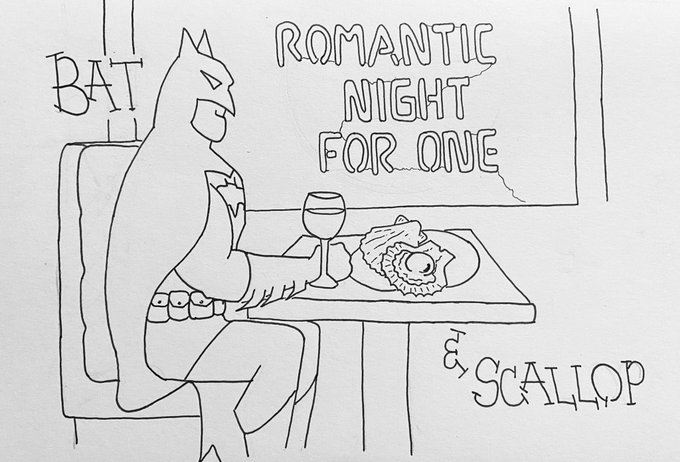 BAT
ROMANTIC
NIGHT
FOR ONE
& SCALLOP